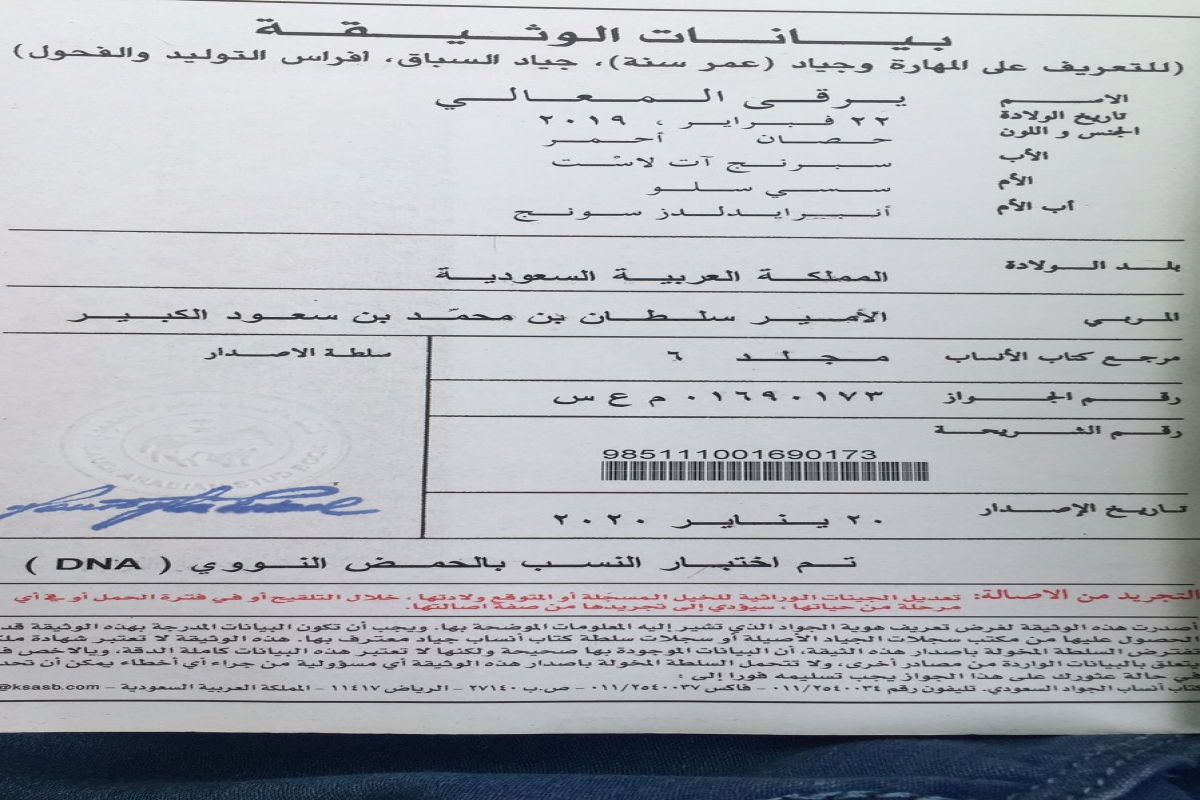 بيانات الوثيقة
(للتعريف على المهارة وجياد (عمر سنة)، جياد السباق، افراس التوليد والفحول)
الاسم يرقى المعالي
تاريخ الولادة ٢٢ فبراير ، ٢٠١٩
الجنس و اللون حصان أحمر
الأب سبرنج آت لاست
الأم سسي سلو
أب الأم أنبرايدلدز سونج
بلد الولادة المملكة العربية السعودية
المربي الأمير سلطان بن محمد بن سعود الكبير
مرجع كتاب الأنساب مجلد ٦
سلطة الاصدار
رقم الجواز ٠١٦٩٠١٧٣ م ع س
رقم الشريحة
985111001690173
تاريخ الإصدار ٢٠ يناير ٢٠٢٠
تم اختبار النسب بالحمض النووي ( DNA )
التجريد من الاصالة: تعديل الجينات الوراثية للخيل المسجلة أو المتوقع ولادتها ، خلال التلقيح أو في فترة الحمل أو في أي
مرحلة من حياتها ، سيؤدي إلى تجريدها من صفة اصالتها.
أصدرت هذه الوثيقة لغرض تعريف هوية الجواد الذي تشير إليه المعلومات الموضحة بها. ويجب أن تكون البيانات المدرجة بهذه الوثيقة قد
الحصول عليها من مكتب سجلات الجياد الأصيلة أو سجلات سلطة كتاب أنساب جياد معترف بها. هذه الوثيقة لا تعتبر شهادة
تفترض السلطة المخولة باصدار هذه الثيقة، أن البيانات الموجودة بها صحيحة ولكنها لا تعتبر هذه البيانات كاملة الدقة. وبالاخص
يتعلق بالبيانات الواردة من مصادر أخرى، ولا تتحمل السلطة المخولة باصدار هذه الوثيقة أي مسؤولية من جراء أي أخطاء يمكن أن
في حالة عثورك على هذا الجواز يجب تسليمه فورا إلى :
كتاب أنساب الجواد السعودي. تليفون رقم ٠١١/٢٥٤٠٠٣٤ - فاكس ٠١١/٢٥٤٠٠٣٧ - ص.ب ٢٧١٤٠ - الرياض ١١٤١٧ - المملكة العربية السعودية - @ksasb.com